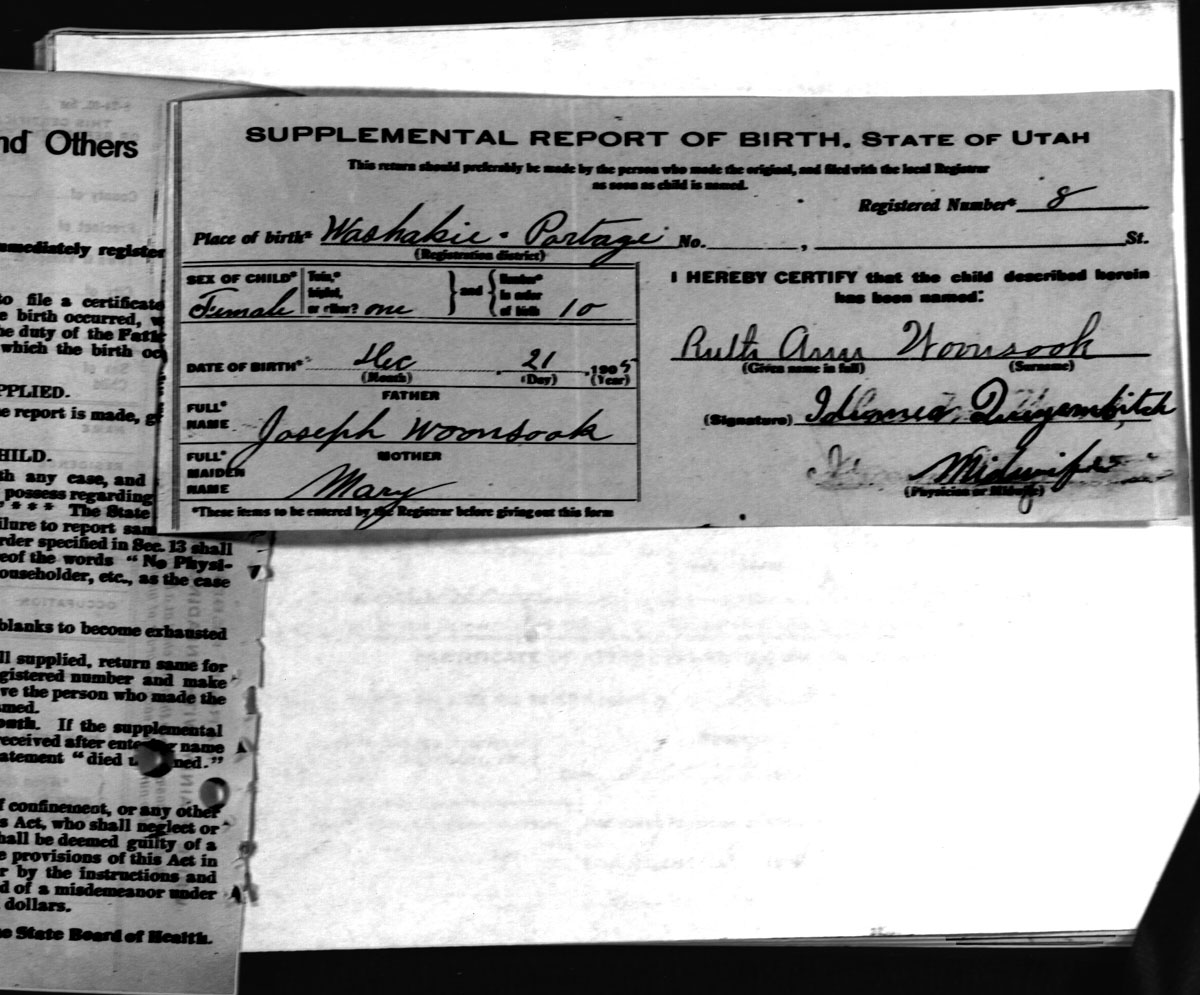 nd Others
mmediately register
to file a certificate
e birth occurred, w
he duty of the Fath
which the birth oc
PPLIED.
e report is made, g
HILD.
th any case, and
possess regarding
" * * * * The State
ilure to report sam
rder specified in Sec. 13 shall
eof the words "No Physi-
ouseholder, etc., as the case
blanks to become exhausted
ll supplied, return same for
gistered number and make
ve the person who made the
med.
If the supplemental
received after name
atement "died
f confinement, or any other
s Act, who shall neglect or
hall be deemed guilty of a
e provisions of this Act in
r by the instructions and
d of a misdemeanor under
dollars.
e State Board of Health.
SUPPLEMENTAL REPORT OF BIRTH. STATE OF UTAH
This return should preferably be made by the person who made the original, and filed with the local Registrar
as soon as child is named.
Registered Number* 8
Place of birth* Washakie - Portage No. , St.
(Registration district)
SEX OF CHILD* Female
Twin,* triplet, or other? one } and { Number* in order of birth 10
DATE OF BIRTH* Dec 21 1905
(Month) (Day) (Year)
FATHER
FULL* NAME Joseph Woonsook
MOTHER
FULL* MAIDEN NAME Mary
*These items to be entered by the Registrar before giving out this form
I HEREBY CERTIFY that the child described herein
has been named:
Ruth Ann Woonsook
(Given name in full) (Surname)
(Signature)
Midwife
(Physician or Midwife)